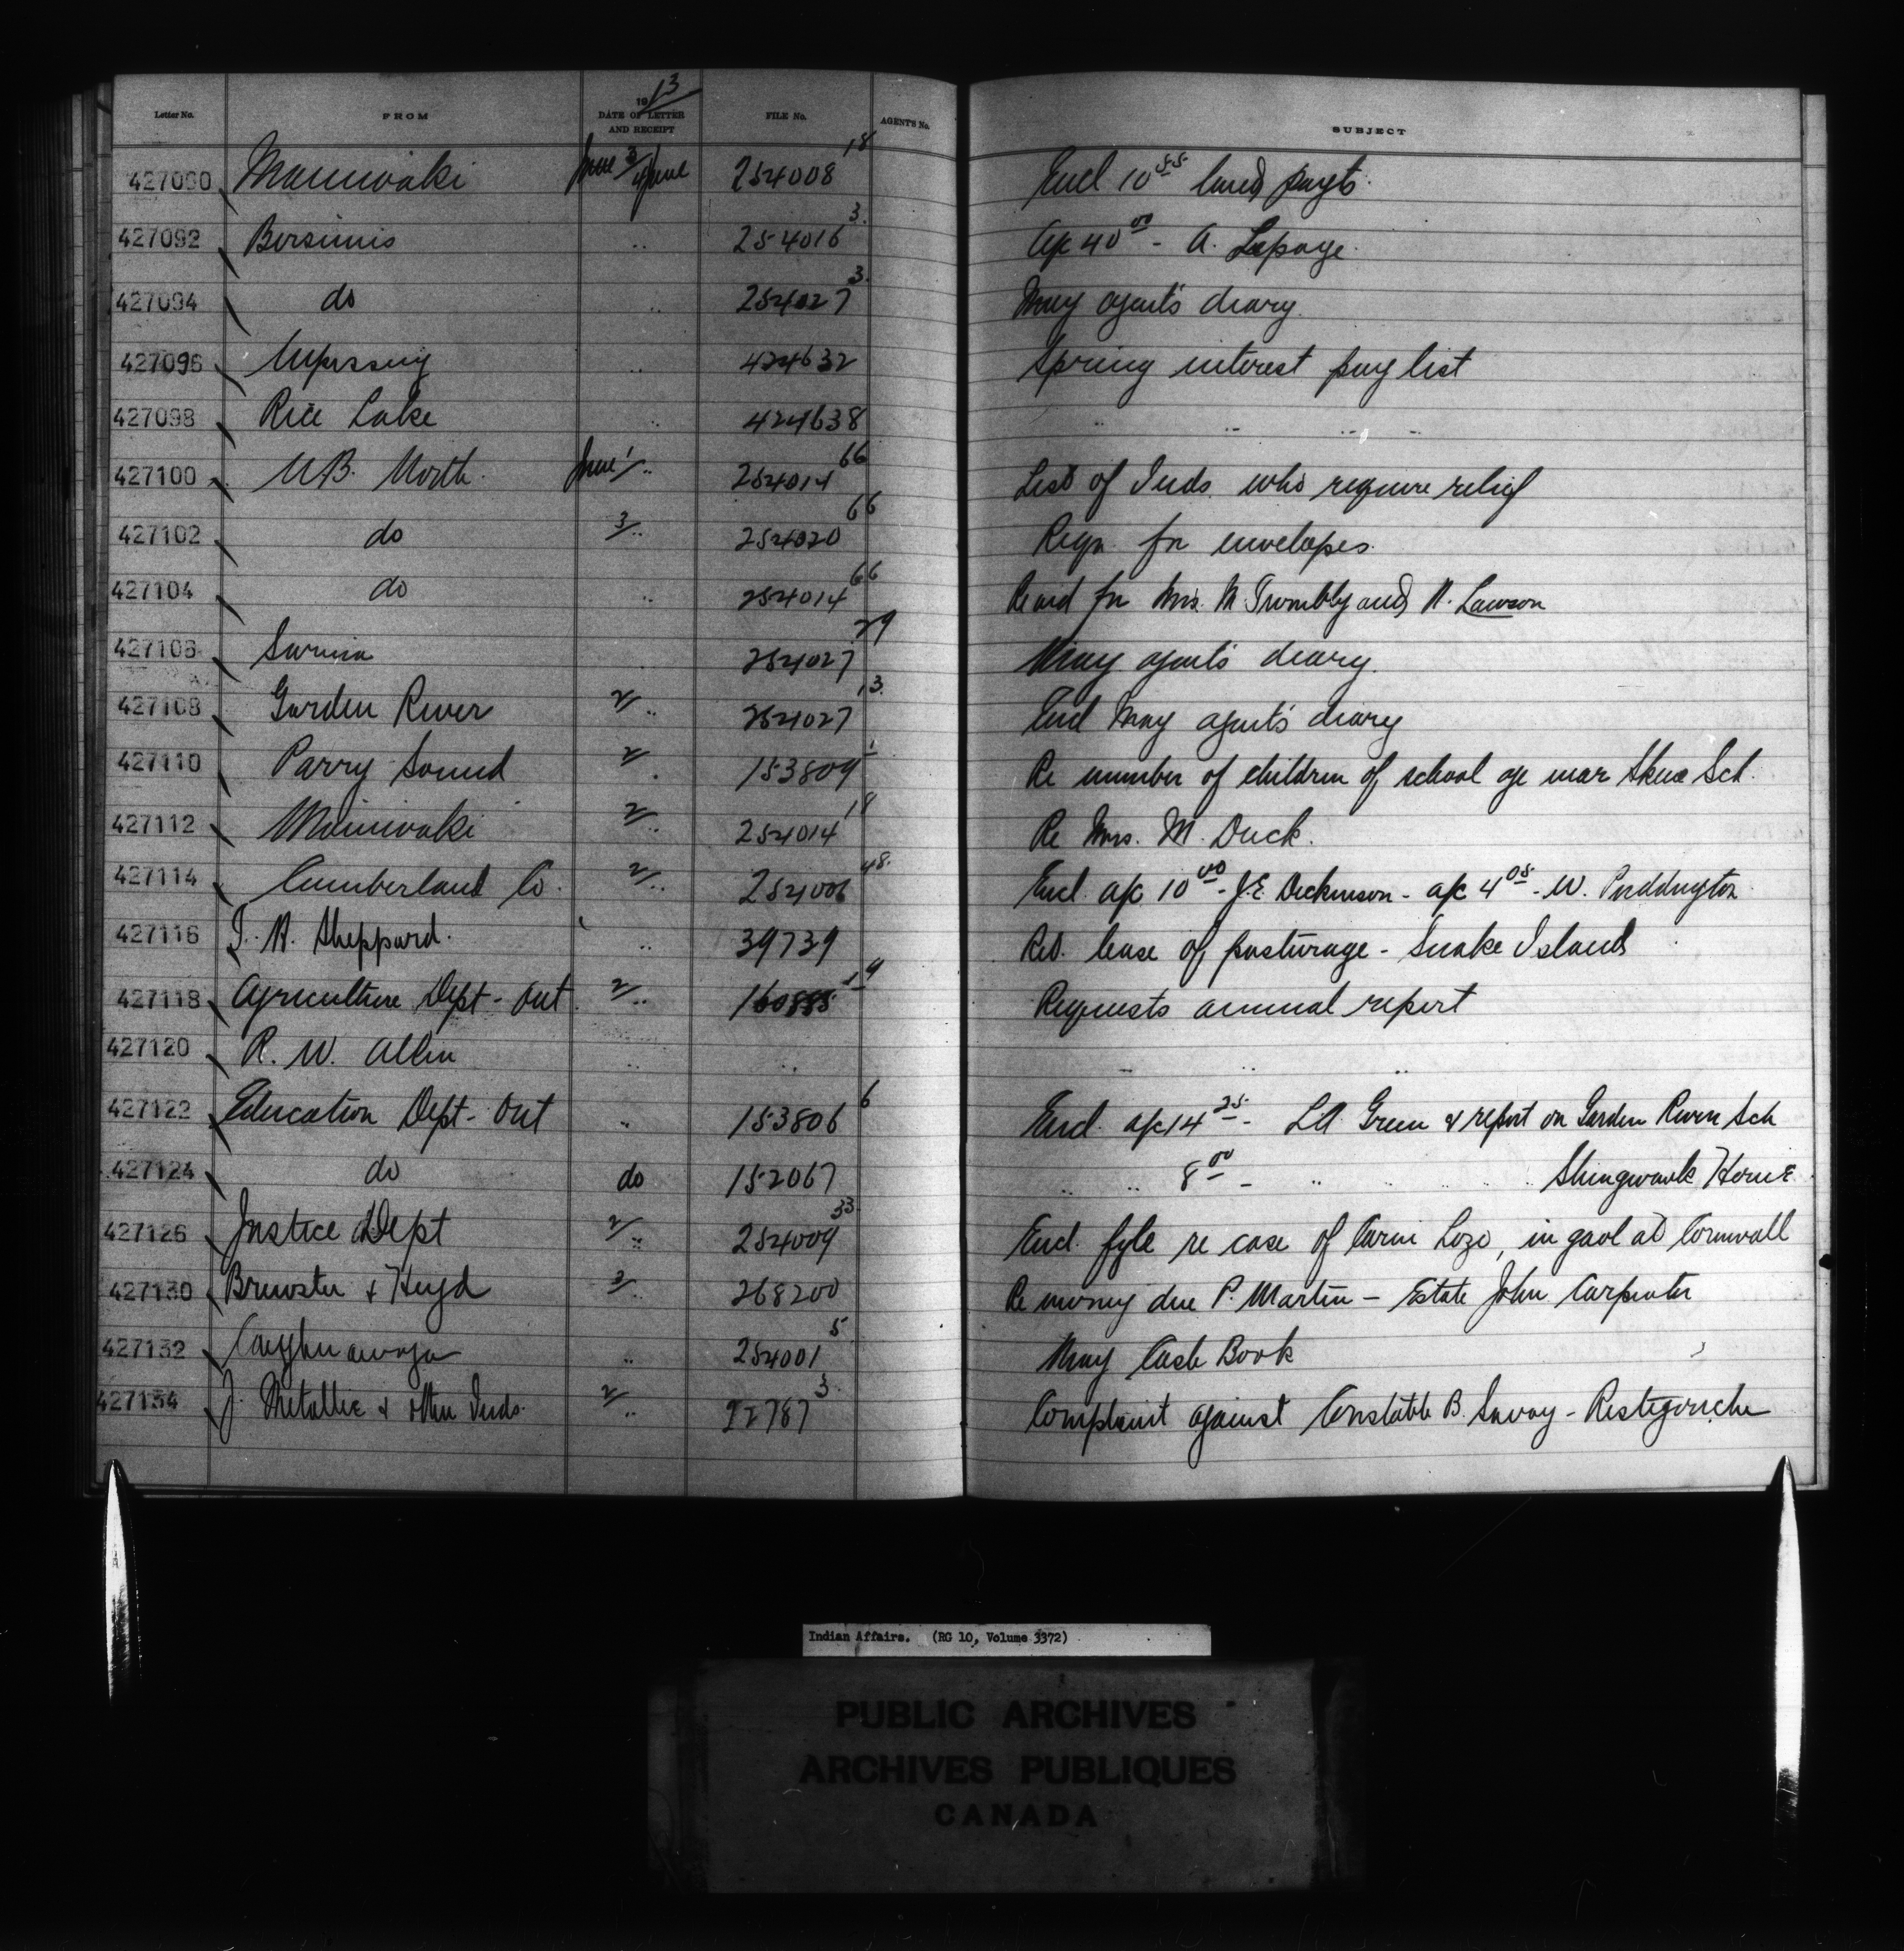 1913
Letter No. FROM DATE OF LETTER AND RECEIPT FILE No. AGENT'S No. SUBJECT
427090 Maniwaki June 3/4 June 254008 18 Encl 10 55 land payts.
427092 Bersimis " 254016 3. a/c 40 00 - A. Lepage.
427094 do " 254027 3. May agent's diary.
427096 Nipissing " 424632 Spring interest pay list
427098 Rice Lake " 424638 " " " "
427100 N.B. North. June 1/" 254014 66 List of Inds. who require relief
427102 do 3/" 254020 66 Reqn for envelopes.
427104 do " 254014 66 Re aid for Mrs. M. Trombly and N. Lawson
427106 Sarnia " 254027 29 May agent's diary.
427108 Garden River 2/" 254027 13. Encl May agent's diary
427110 Parry Sound 2/" 153809 1 Re number of children of school age near Skene Sch.
427112 Maniwaki 2/" 254014 18 Re Mrs. M. Duck.
427114 Cumberland Co. 2/" 254006 48. Encl. a/c 10 00 - J.E. Dickinson - a/c 4 05 - W. Puddington
427116 T. H. Sheppard. " 39739 Ret. lease of pasturage - Snake Island
427118 Agriculture Dept - Ont. 2/" 160855 19 Requests annual report
427120 R. W. Allin " " " "
427122 Education Dept - Ont " 153806 6 Encl. a/c 14 25 - L.A. Green & report on Garden River Sch
427124 do do 152067 " " 8 00 - " " " " Shingwauk Home
427126 Justice Dept 2/" 254009 33 Encl. fyle re case of Lozo, in gaol at Cornwall
427130 Brewster & Heyd 3/" 268200 Re money due P. Martin - Estate John Carpenter
427132 Caughnawaga " 254001 5 May Cash Book
427134 J. Metallic & other Inds. 2/" 22787 3. Complaint against Constable B. Savoy - Restigouche
Indian Affairs. (RG 10, Volume 3372)
PUBLIC ARCHIVES
ARCHIVES PUBLIQUES
CANADA